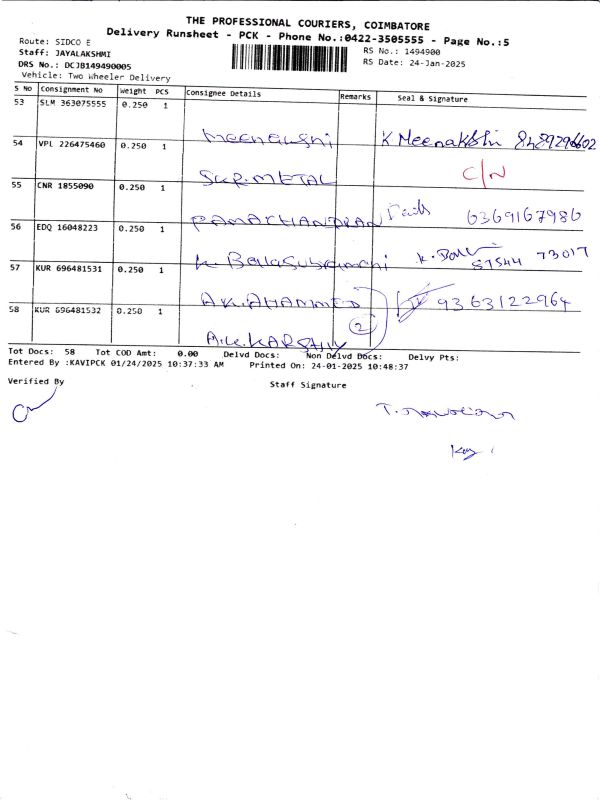 THE PROFESSIONAL COURIERS, COIMBATORE
Delivery Runsheet - PCK - Phone No.:0422-3505555 - Page No.:5
Route: SIDCO E
RS No.: 1494900
Staff: JAYALAKSHMI
RS Date: 24-Jan-2025
DRS No.: DCJB149490005
Vehicle: Two Wheeler Delivery
S No Consignment No Weight PCS Consignee Details Remarks Seal & Signature
53 SLM 363075555 0.250 1
Meenakshi K Meenakshi 8489296602
54 VPL 226475460 0.250 1
S.K.R. METAL C/N
55 CNR 1855090 0.250 1
RAMACHANDRAN 6369167986
56 EDQ 16048223 0.250 1
K. Balasubramani K. Bal 87544 73017
57 KUR 696481531 0.250 1
A.K. AHAMMED 9363122964
58 KUR 696481532 0.250 1
2
Tot Docs: 58 Tot COD Amt: 0.00 Delvd Docs: Non Delvd Docs: Delvy Pts:
Entered By :KAVIPCK 01/24/2025 10:37:33 AM Printed On: 24-01-2025 10:48:37
Verified By Staff Signature